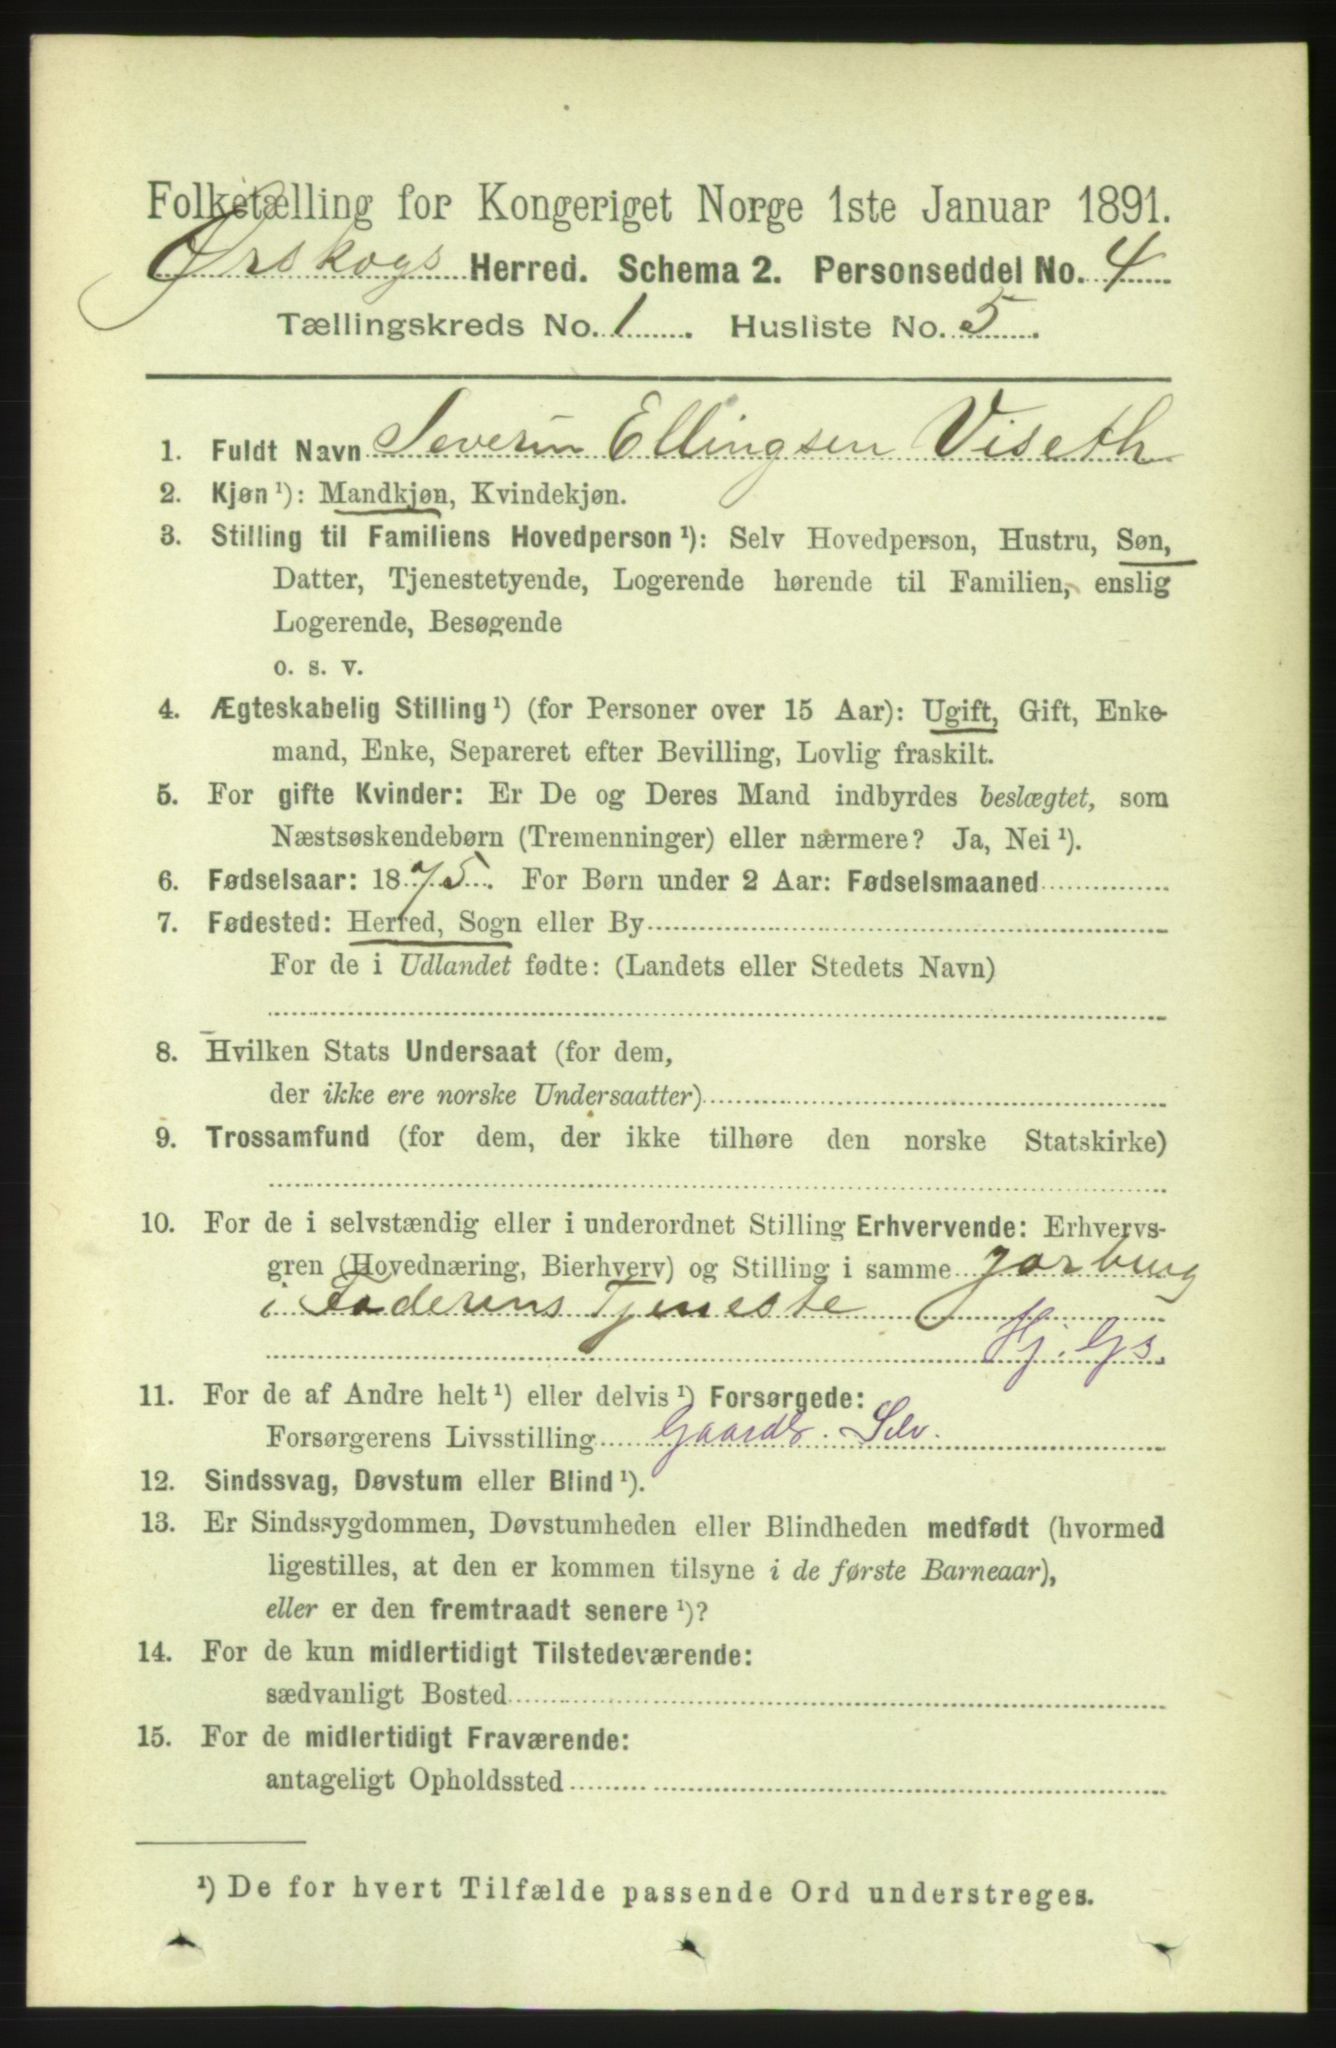 Folketælling for Kongeriget Norge 1ste Januar 1891.
Ørskogs Herred. Schema 2. Personseddel No. 4
Tællingskreds No. 1. Husliste No. 5.
1. Fuldt Navn Severin Ellingsen Viseth
2. Kjøn ¹): Mandkjøn, Kvindekjøn.
3. Stilling til Familiens Hovedperson ¹): Selv Hovedperson, Hustru, Søn,
Datter, Tjenestetyende, Logerende hørende til Familien, enslig
Logerende, Besøgende
o. s. v.
4. Ægteskabelig Stilling ¹) (for Personer over 15 Aar): Ugift, Gift, Enke-
mand, Enke, Separeret efter Bevilling, Lovlig fraskilt.
5. For gifte Kvinder: Er De og Deres Mand indbyrdes beslægtet, som
Næstsøskendebørn (Tremenninger) eller nærmere? Ja, Nei ¹).
6. Fødselsaar: 1875. For Børn under 2 Aar: Fødselsmaaned
7. Fødested: Herred, Sogn eller By
For de i Udlandet fødte: (Landets eller Stedets Navn)
8. Hvilken Stats Undersaat (for dem,
der ikke ere norske Undersaatter)
9. Trossamfund (for dem, der ikke tilhøre den norske Statskirke)
10. For de i selvstændig eller i underordnet Stilling Erhvervende: Erhvervs-
gren (Hovednæring, Bierhverv) og Stilling i samme Jorbrug
i Faderens Tjeneste
Hj. Gs.
11. For de af Andre helt ¹) eller delvis ¹) Forsørgede:
Forsørgerens Livsstilling Gaardb. Selv.
12. Sindssvag, Døvstum eller Blind ¹).
13. Er Sindssygdommen, Døvstumheden eller Blindheden medfødt (hvormed
ligestilles, at den er kommen tilsyne i de første Barneaar),
eller er den fremtraadt senere ¹)?
14. For de kun midlertidigt Tilstedeværende:
sædvanligt Bosted
15. For de midlertidigt Fraværende:
antageligt Opholdssted
¹) De for hvert Tilfælde passende Ord understreges.